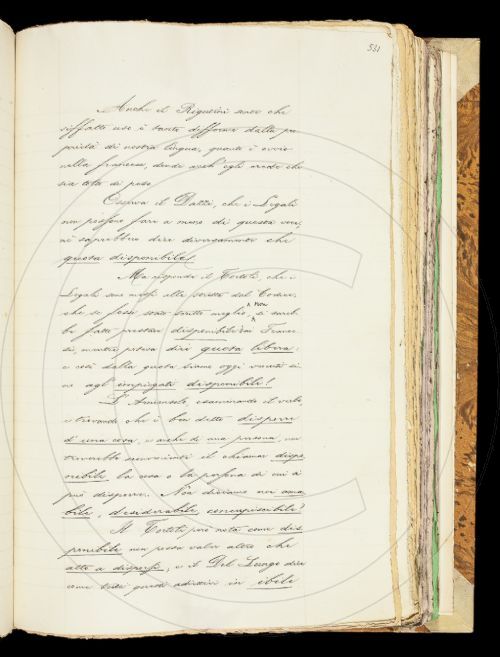 531
Anche il Rigutini sente che
siffatto uso è tanto difforme dalla pro
prietà di nostra lingua, quanto è ovvio
nella francese, donde anch'egli crede che
sia tolto di peso.
Osserva il Dazzi, che i Legali
non possono fare a meno di questa voce,
nè saprebbero dire diversamente che
quota disponibile!
Ma risponde il Tortoli, che i
Legali sono mossi alle scritte del Codice,
che se fosse stato scritto meglio, non si sareb
be fatto prestare disponibile dai France
si, mentre poteva dire quota libera:
e così dalla quota siamo oggi venuti si
no agl'impiegati disponibili!
L'Arnansole, esaminando il verbo,
e trovando che è ben detto disporre
d'una cosa, e anche di una persona, non
troverebbe sconveniente il chiamar dispo
nibile la cosa o la persona di cui si
può disporre. Non diciamo noi ama
bile, desiderabile, concupiscibile?
Il Tortoli però nota come dis
ponibile non possa valer altro che
atto a disporsi, e il Del Lungo dice
come tutti questi adiettivi in ibile